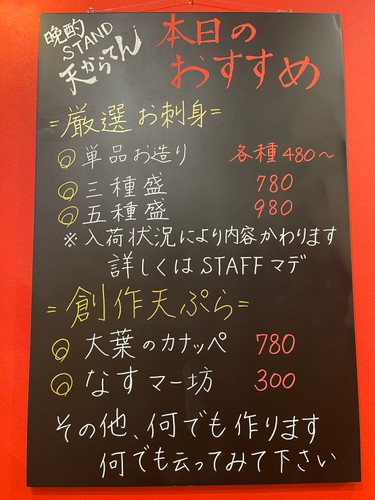 晩酌
STAND
天からてん
本日の
おすすめ
=厳選お刺身=
◎単品お造り 各種480~
◎三種盛 780
◎五種盛 980
※入荷状況により内容かわります
詳しくはSTAFFマデ
=創作天ぷら=
◎大葉のカナッペ 780
◎なすマー坊 300
その他、何でも作ります
何でも云ってみて下さい